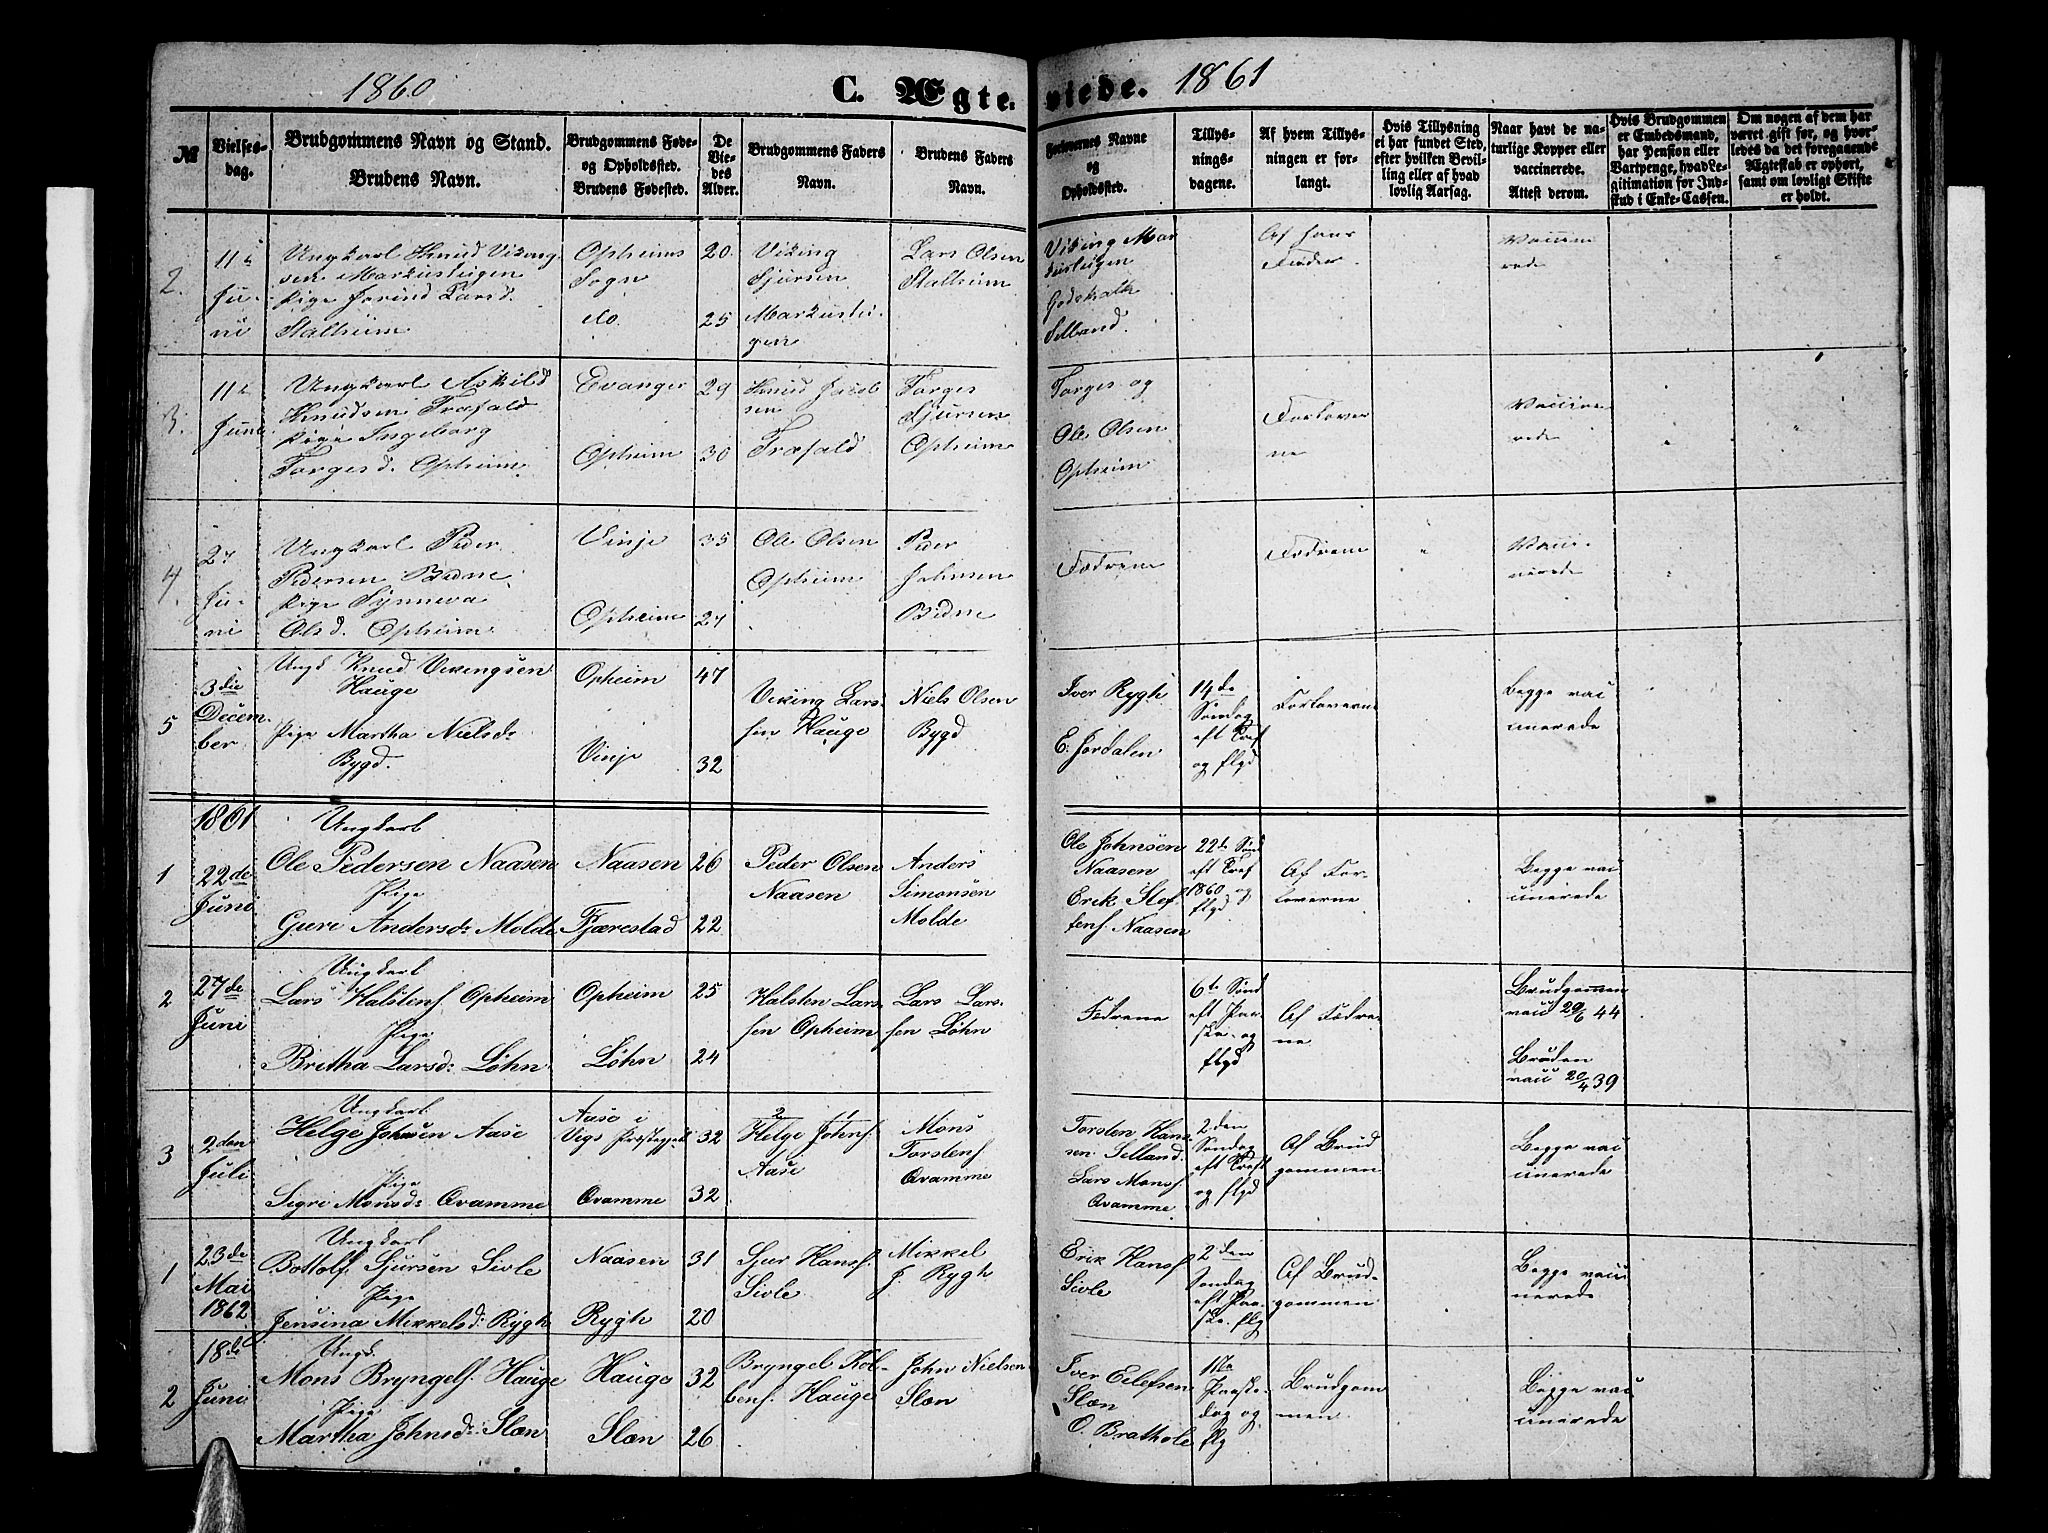 1860
C. Ægteviede.
1861
№
Vielses-
dag.
Brudgommens Navn og Stand.
Brudens Navn.
Brudgommens Føde-
og Opholdssted.
Brudens Fødested.
De
Vie-
des
Alder.
Brudgommens Faders
Navn.
Brudens Faders
Navn.
Forlovernes Navne
og
Opholdssted.
Tillys-
nings-
dagene.
Af hvem Tillys-
ningen er for-
langt.
Hvis Tillysning
ei har fundet Sted,
efter hvilken Bevil-
ling eller af hvad
lovlig Aarsag.
Naar havt de na-
turlige Kopper eller
vaccinerede.
Attest derom.
Hvis Brudgommen
er Embedsmand,
har Pension eller
Vartpenge, hvad Le-
gitimation for Ind-
skud i Enke-Cassen.
Om nogen af dem har
været gift før, og hvor-
ledes da det foregaaende
Ægteskab er ophørt,
samt om lovligt Skifte
er holdt.
2.
11te
Ju-
ni
Ungkarl Knud Viking-
sen Markusteigen
Pige Jorind Larsd.
Stalheim
Opheims
Sogn
do.
20.
25
Viking
Sjursen
Markustei-
gen
Lars Olsen
Stalheim
Viking Mar
kusteigen
Godskalk
Selland.
Af hans
Fader.
Vaccine
rede
3.
11te
Juni
Ungkarl Askild
Knudsen Træfald
Pige Ingeborg
Torgesd. Opheim
Evanger
Opheim
29
30
Knud Jacob
sen
Træfald
Torges
Sjursen
Opheim
Torges og
Ole Olsen
Opheim
Forlover
ne
Vaccine
rede
4.
27
Ju-
ni
Ungkarl Peder
Pedersen Bidne
Pige Synneva
Olsd. Opheim
Vinje
Opheim
35
27
Ole Olsen
Opheim
Peder
Johnsen
Bidne
Fædrene
Fædrene
Vacci-
nerede
5
3die
Decem-
ber
Ungk Knud Vikingsen
Hauge
Pige Martha Nielsdr
Bygd.
Opheim
Vinje
47
32
Viking Lars-
sen Hauge
Niels Olsen
Bygd
Iver Rygh
E. Jordalen
14de
Søndag
eft Tref
og flgd
Forloverne
Begge vac
cinerede
1861
1
22de
Juni
Ungkarl
Ole Pedersen Naasen
Pige
Guri Andersdr Molde
Naasen
Fjærestad
26
22
Peder Olsen
Naasen
Anders
Simonsen
Molde
Ole Johnsen
Naasen
Erik Stef-
fens. Naasen
22de Sønd
eft Tref
1860 og
flgd
Af For-
loverne
Begge vac
cinerede
2
27de
Juni
Ungkarl
Lars Halstens. Opheim
Pige
Britha Larsdr Løhn
Opheim
Løhn
25
24
Halsten Lars-
sen Opheim
Lars Lars-
sen Løhn
Fædrene
6te Sønd
eft Paa-
ske og
flgd
Af Fædre-
ne
Brudgomen
vacc 29/6 44
Bruden
vacc 20/4 39
3
2den
Juli
Ungkarl
Helge Johnsen Aase
Pige
Sigri Monsdr Qvamme
Aase i
Vigs Præstegjeld
Qvamme
32
32
Helge Johns.
Aase
Mons
Torstens.
Qvamme
Torsten Han-
sen Selland.
Lars Mons.
Qvamme
2den
Søndag
eft Tref
og flgd
Af Brud
gommen
Begge vac
cinerede
1
23de
Mai
1862
Ungkarl
Bottolf Sjursen Sivle
Pige
Jensina Mikkelsd: Rygh
Naasen
Rygh
31
20
Sjur Hans.
Sivle
Mikkel
J. Rygh
Erik Hans.
Sivle
2den
Søndag
eft Paa-
ske. flg
Af Brud-
gommen
Begge vacci
nerede
2
18de
Juni
Ungk.
Mons Bryngels. Hauge
Pige
Martha Johnsdr: Slæn
Hauge
Slæn
32
26
Bryngel Kol-
bens. Hauge
John Nielsen
Slæn
Iver Eilefsen
Slæn
O. Brathole
1ste
Paaske
dag og
flg
Brudgom
men
Begge vac
cinerede